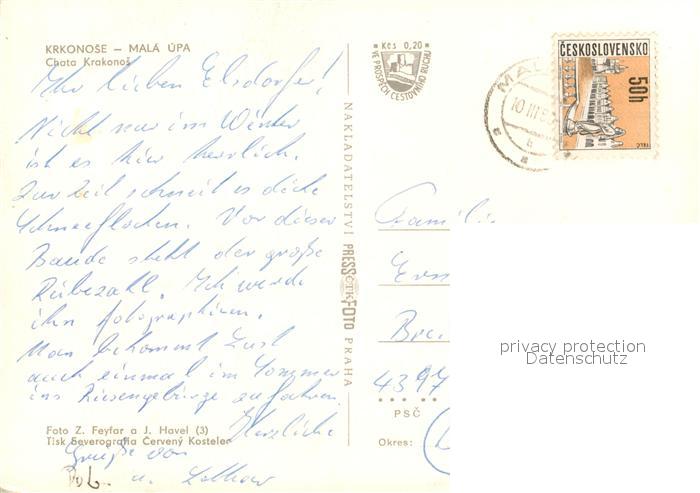 KRKONOŠE – MALÁ ÚPA
Chata Krakonoš
Ihr lieben Elsdorfer!
Nicht nur im Winter
ist es hier herrlich.
Zur Zeit schneit es dicke
Schneeflocken. Vor dieser
Baude steht der große
Rübezahl. Ich werde
ihn fotographieren.
Man bekommt Lust
auch einmal im Sommer
ins Riesengebirge zu fahren.
Herzliche
Grüße von
u.
Foto Z. Feyfar a J. Havel (3)
Tisk Severografia Červený Kostelec
NAKLADATELSTVÍ PRESSFOTO PRAHA
ČTK
Kčs 0,20
VE PROSPĚCH CESTOVNÍHO RUCHU
ČESKOSLOVENSKO
50h
TELČ
MAL
10 III
Familie
4397
PSČ
Okres:
privacy protection
Datenschutz